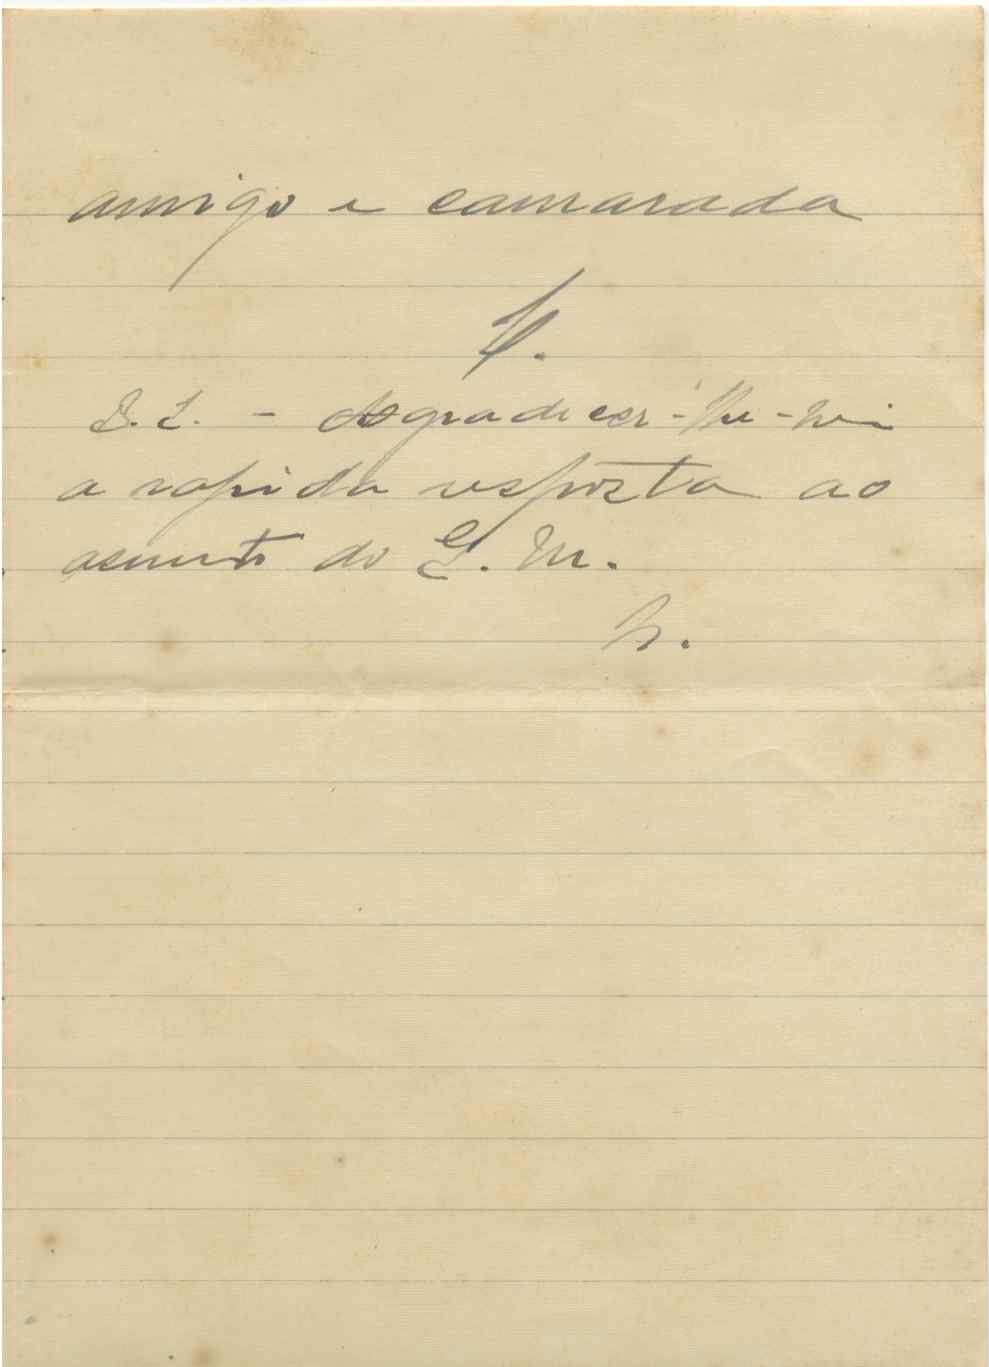 amigo e camarada
S. L. - Agradecer-lhe-hei
a rapida resposta ao
assunto do G. M.